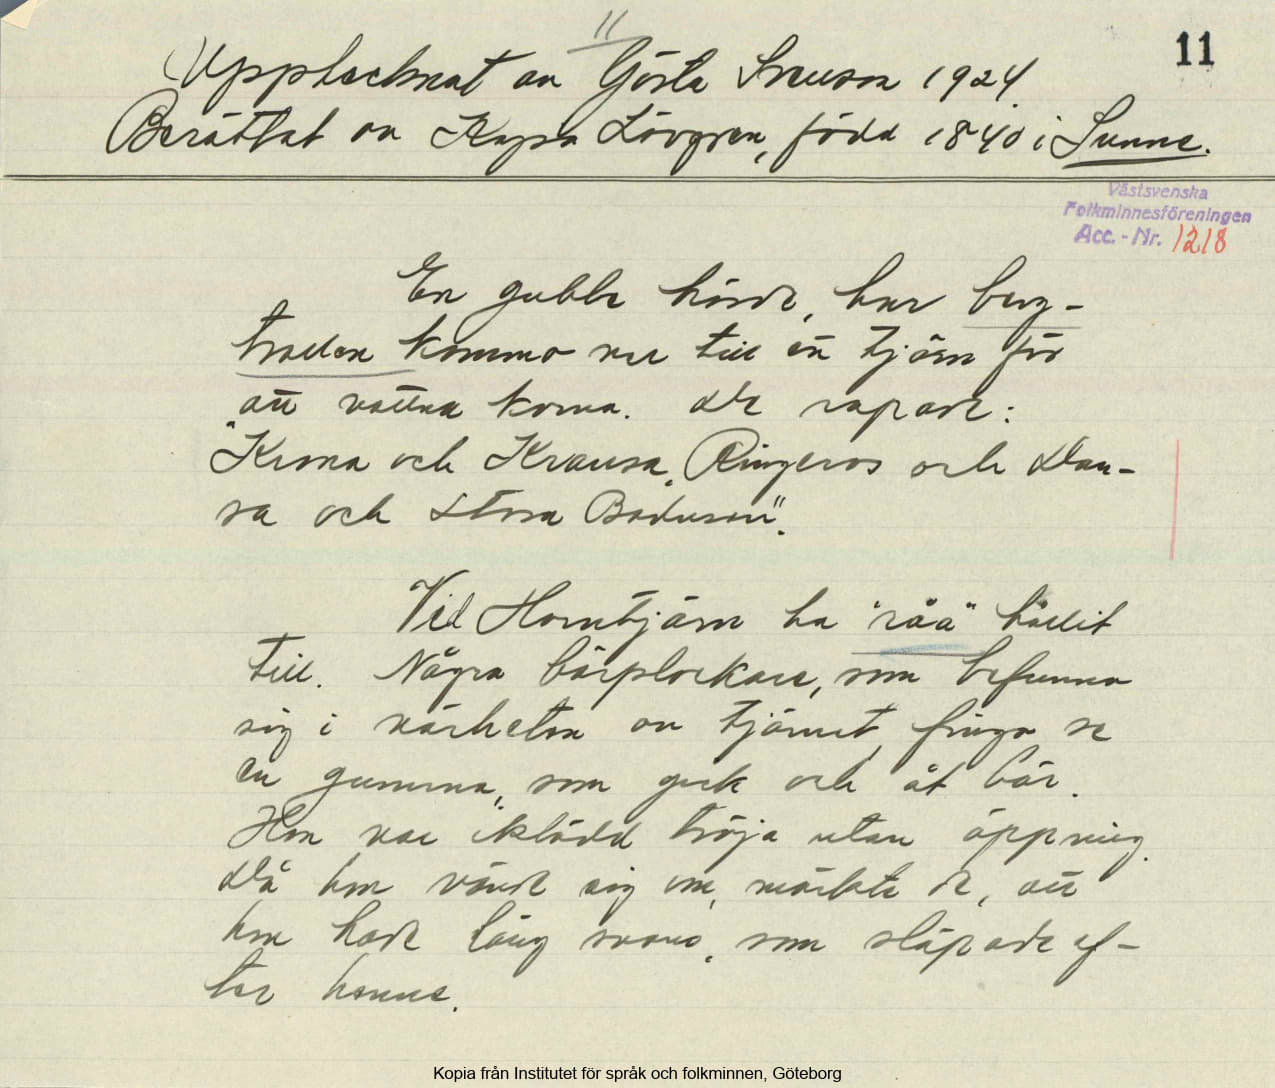 11
11
Upptecknat av Gösta Svenson 1924.
Berättat av Kajsa Lövgren, född 1840 i Sunne.
Västsvenska
Folkminnesföreningen
Acc. - Nr. 1218
En gubbe hörde, hur berg-
trollen kommo ner till en tjärn för
att vattna korna. De ropade:
"Krona och Krausa, Ringeros och Dan-
sa och Stora Boduson".
Vid Horntjärn ha "råa" hållit
till. Några bärplockare, som befunno
sig i närheten av tjärnet, fingo se
en gumma, som gick och åt bär.
Hon var iklädd tröja utan öppning.
Då hon vände sig om, märkte de, att
hon hade lång svans, som släpade ef-
ter henne.
Kopia från Institutet för språk och folkminnen, Göteborg